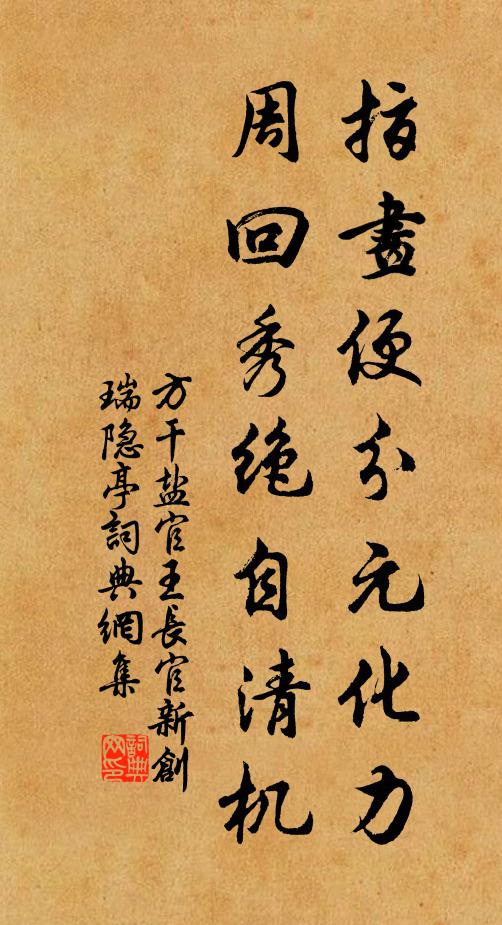 指畫便分元化力
周回秀绝自清机
方干盐官王長官新創
瑞隐亭詞典網集
詞典
网印